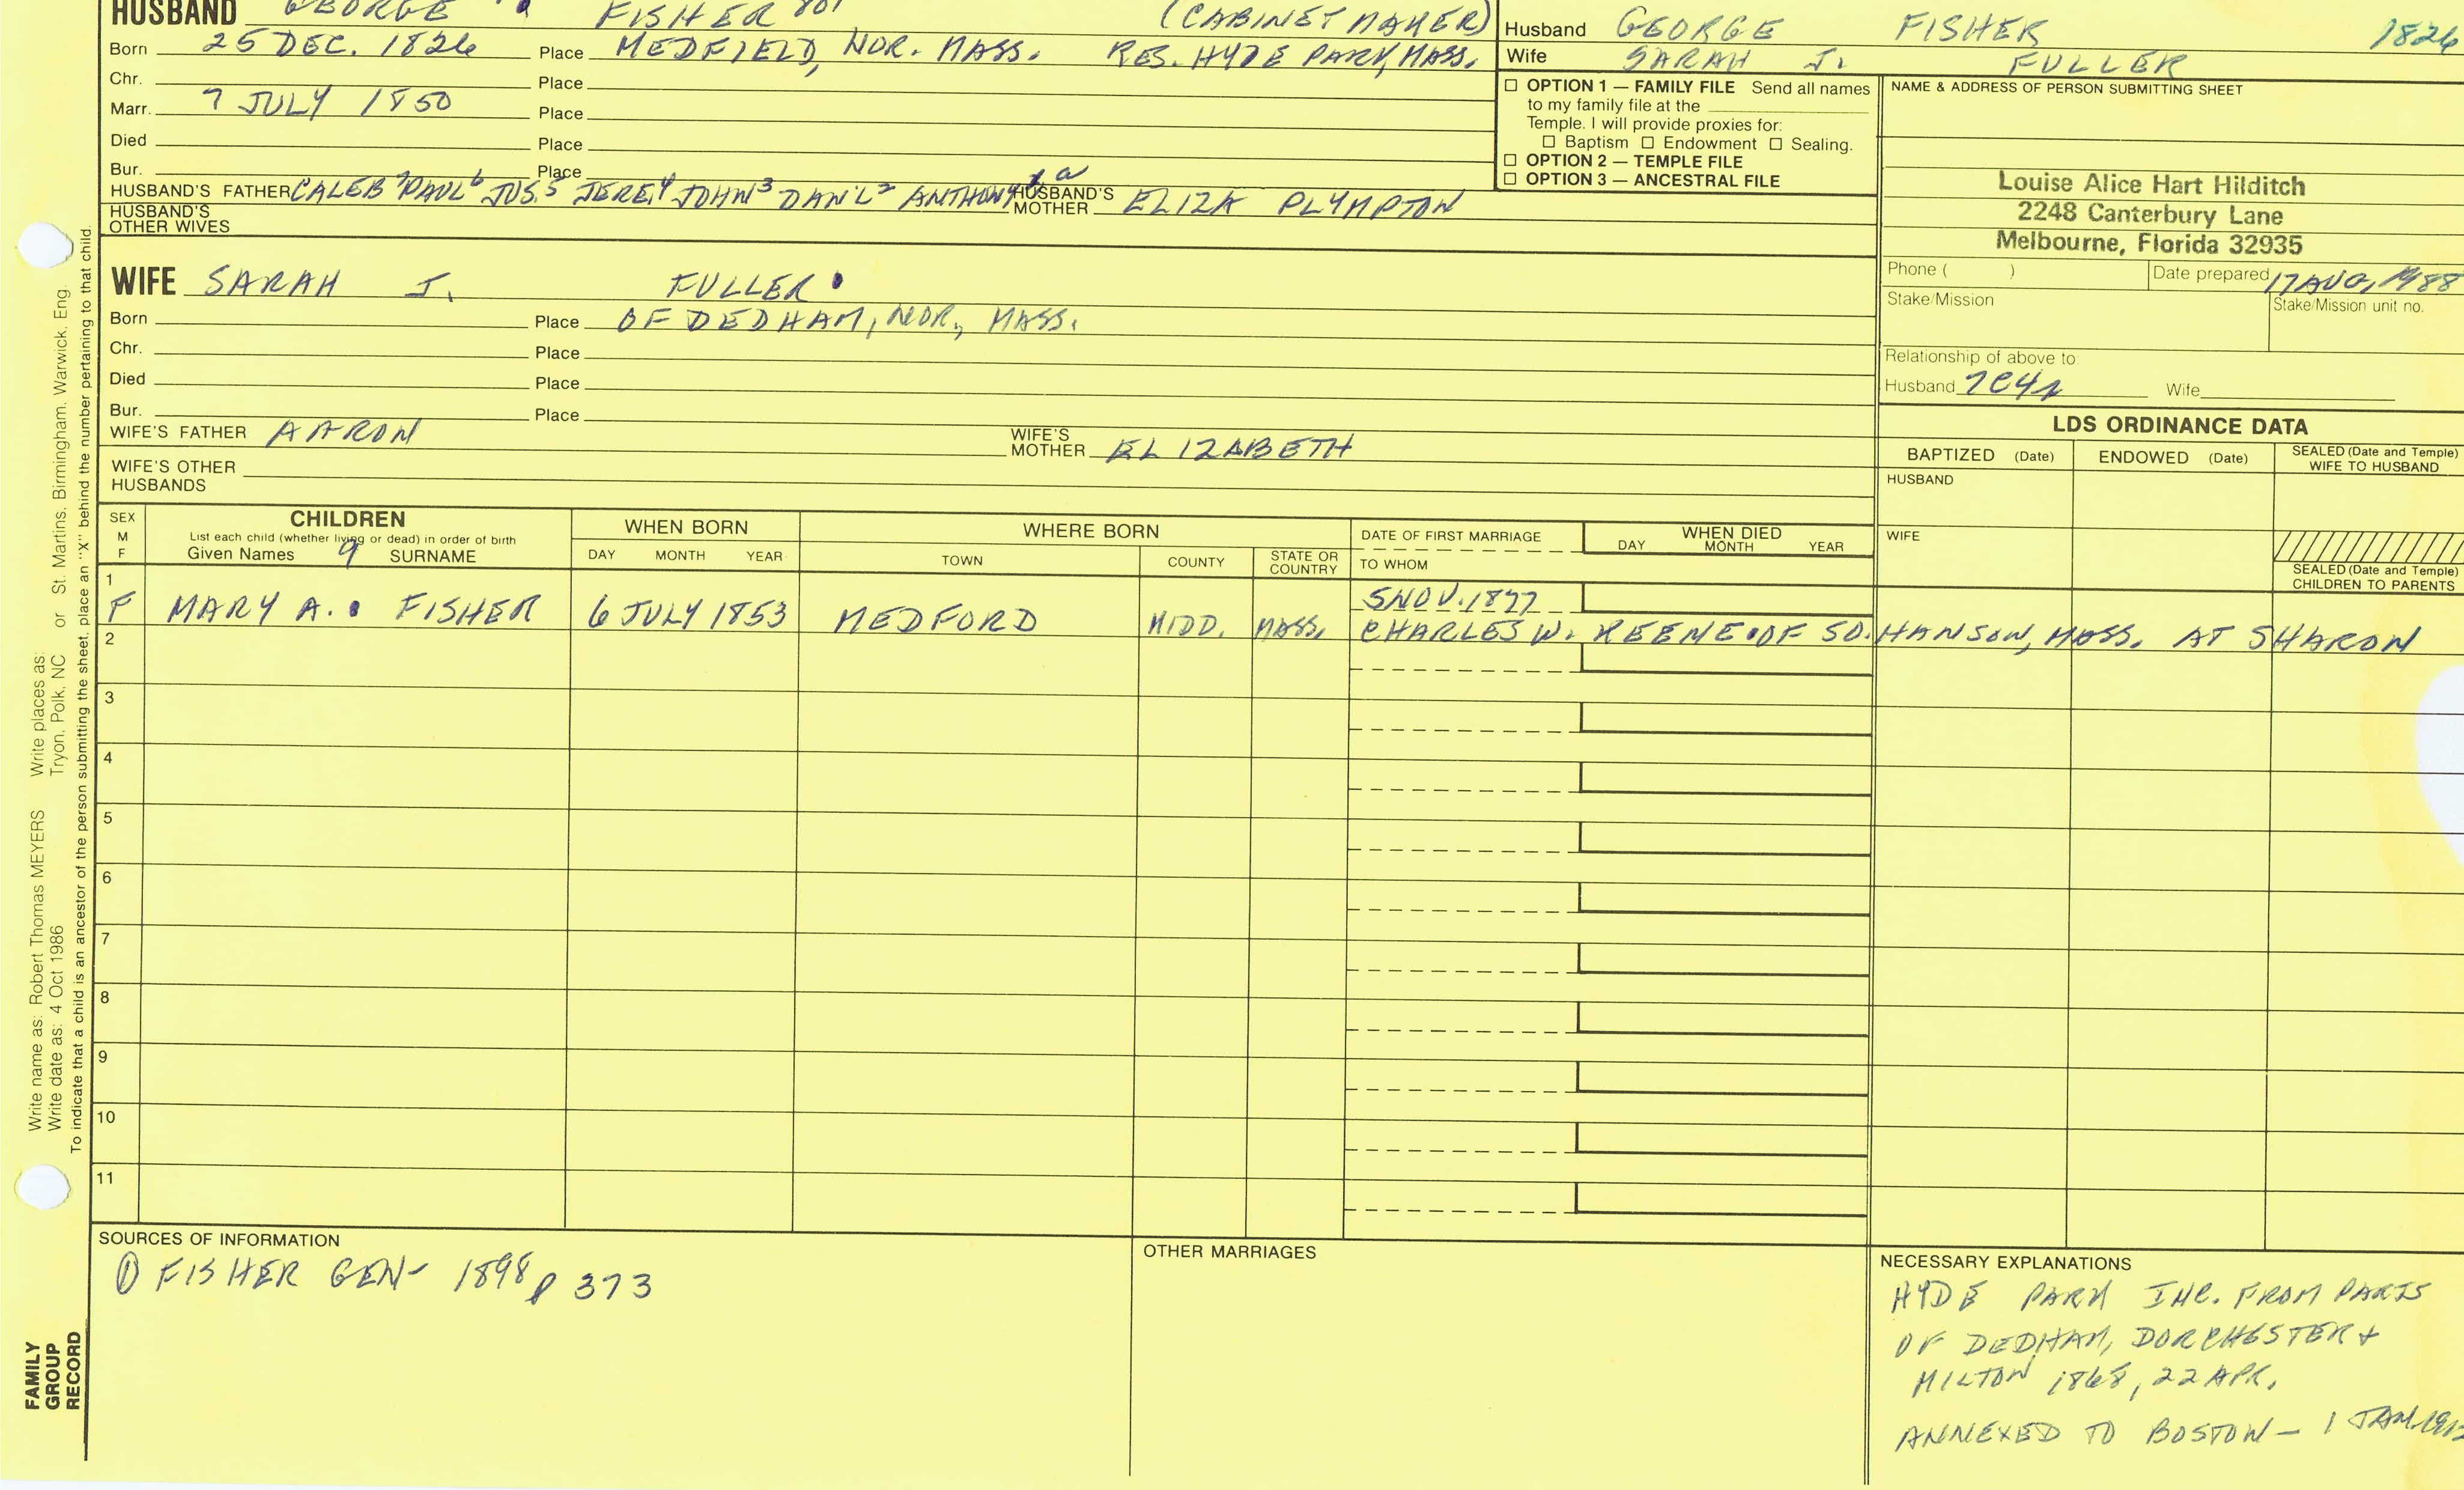 HUSBAND GEORGE FISHER 801 (CABINET MAKER)
Born 25 DEC. 1826 Place MEDFIELD, NOR. MASS. RES. HYDE PARK, MASS.
Chr. Place
Marr. 7 JULY 1850 Place
Died Place
Bur. Place
HUSBAND'S FATHER CALEB7 PAUL6 JOS.5 JERE.4 JOHN3 DAN'L2 ANTHONY1 a HUSBAND'S MOTHER ELIZA PLYMPTON
HUSBAND'S OTHER WIVES
Husband GEORGE FISHER 1826
Wife SARAH J. FULLER
☐ OPTION 1 — FAMILY FILE Send all names
to my family file at the
Temple. I will provide proxies for:
☐ Baptism ☐ Endowment ☐ Sealing.
☐ OPTION 2 — TEMPLE FILE
☐ OPTION 3 — ANCESTRAL FILE
NAME & ADDRESS OF PERSON SUBMITTING SHEET
Louise Alice Hart Hilditch
2248 Canterbury Lane
Melbourne, Florida 32935
Phone ( ) Date prepared 17 AUG, 1988
Stake/Mission Stake/Mission unit no.
Relationship of above to:
Husband 7C4R Wife
WIFE SARAH J. FULLER
Born Place OF DEDHAM, NOR., MASS.
Chr. Place
Died Place
Bur. Place
WIFE'S FATHER AARON WIFE'S MOTHER ELIZABETH
WIFE'S OTHER HUSBANDS
LDS ORDINANCE DATA
BAPTIZED (Date) ENDOWED (Date) SEALED (Date and Temple) WIFE TO HUSBAND
HUSBAND
WIFE
SEALED (Date and Temple) CHILDREN TO PARENTS
SEX M F
CHILDREN
List each child (whether living or dead) in order of birth
Given Names 9 SURNAME
WHEN BORN
DAY MONTH YEAR
WHERE BORN
TOWN COUNTY STATE OR COUNTRY
DATE OF FIRST MARRIAGE
TO WHOM
WHEN DIED
DAY MONTH YEAR
1
5 NOV. 1877
F MARY A. FISHER 6 JULY 1853 MEDFORD MIDD. MASS. CHARLES W. KEENE OF SO. HANSON, MASS. AT SHARON
2
3
4
5
6
7
8
9
10
11
SOURCES OF INFORMATION
① FISHER GEN- 1898 p 373
OTHER MARRIAGES
NECESSARY EXPLANATIONS
HYDE PARK INC. FROM PARTS
OF DEDHAM, DORCHESTER +
MILTON 1868, 22 APR.
ANNEXED TO BOSTON — 1 JAN.
Write name as: Robert Thomas MEYERS Write places as:
Write date as: 4 Oct 1986 Tryon, Polk, NC or St. Martins, Birmingham, Warwick, Eng.
To indicate that a child is an ancestor of the person submitting the sheet, place an "X" behind the number pertaining to that child.
FAMILY
GROUP
RECORD